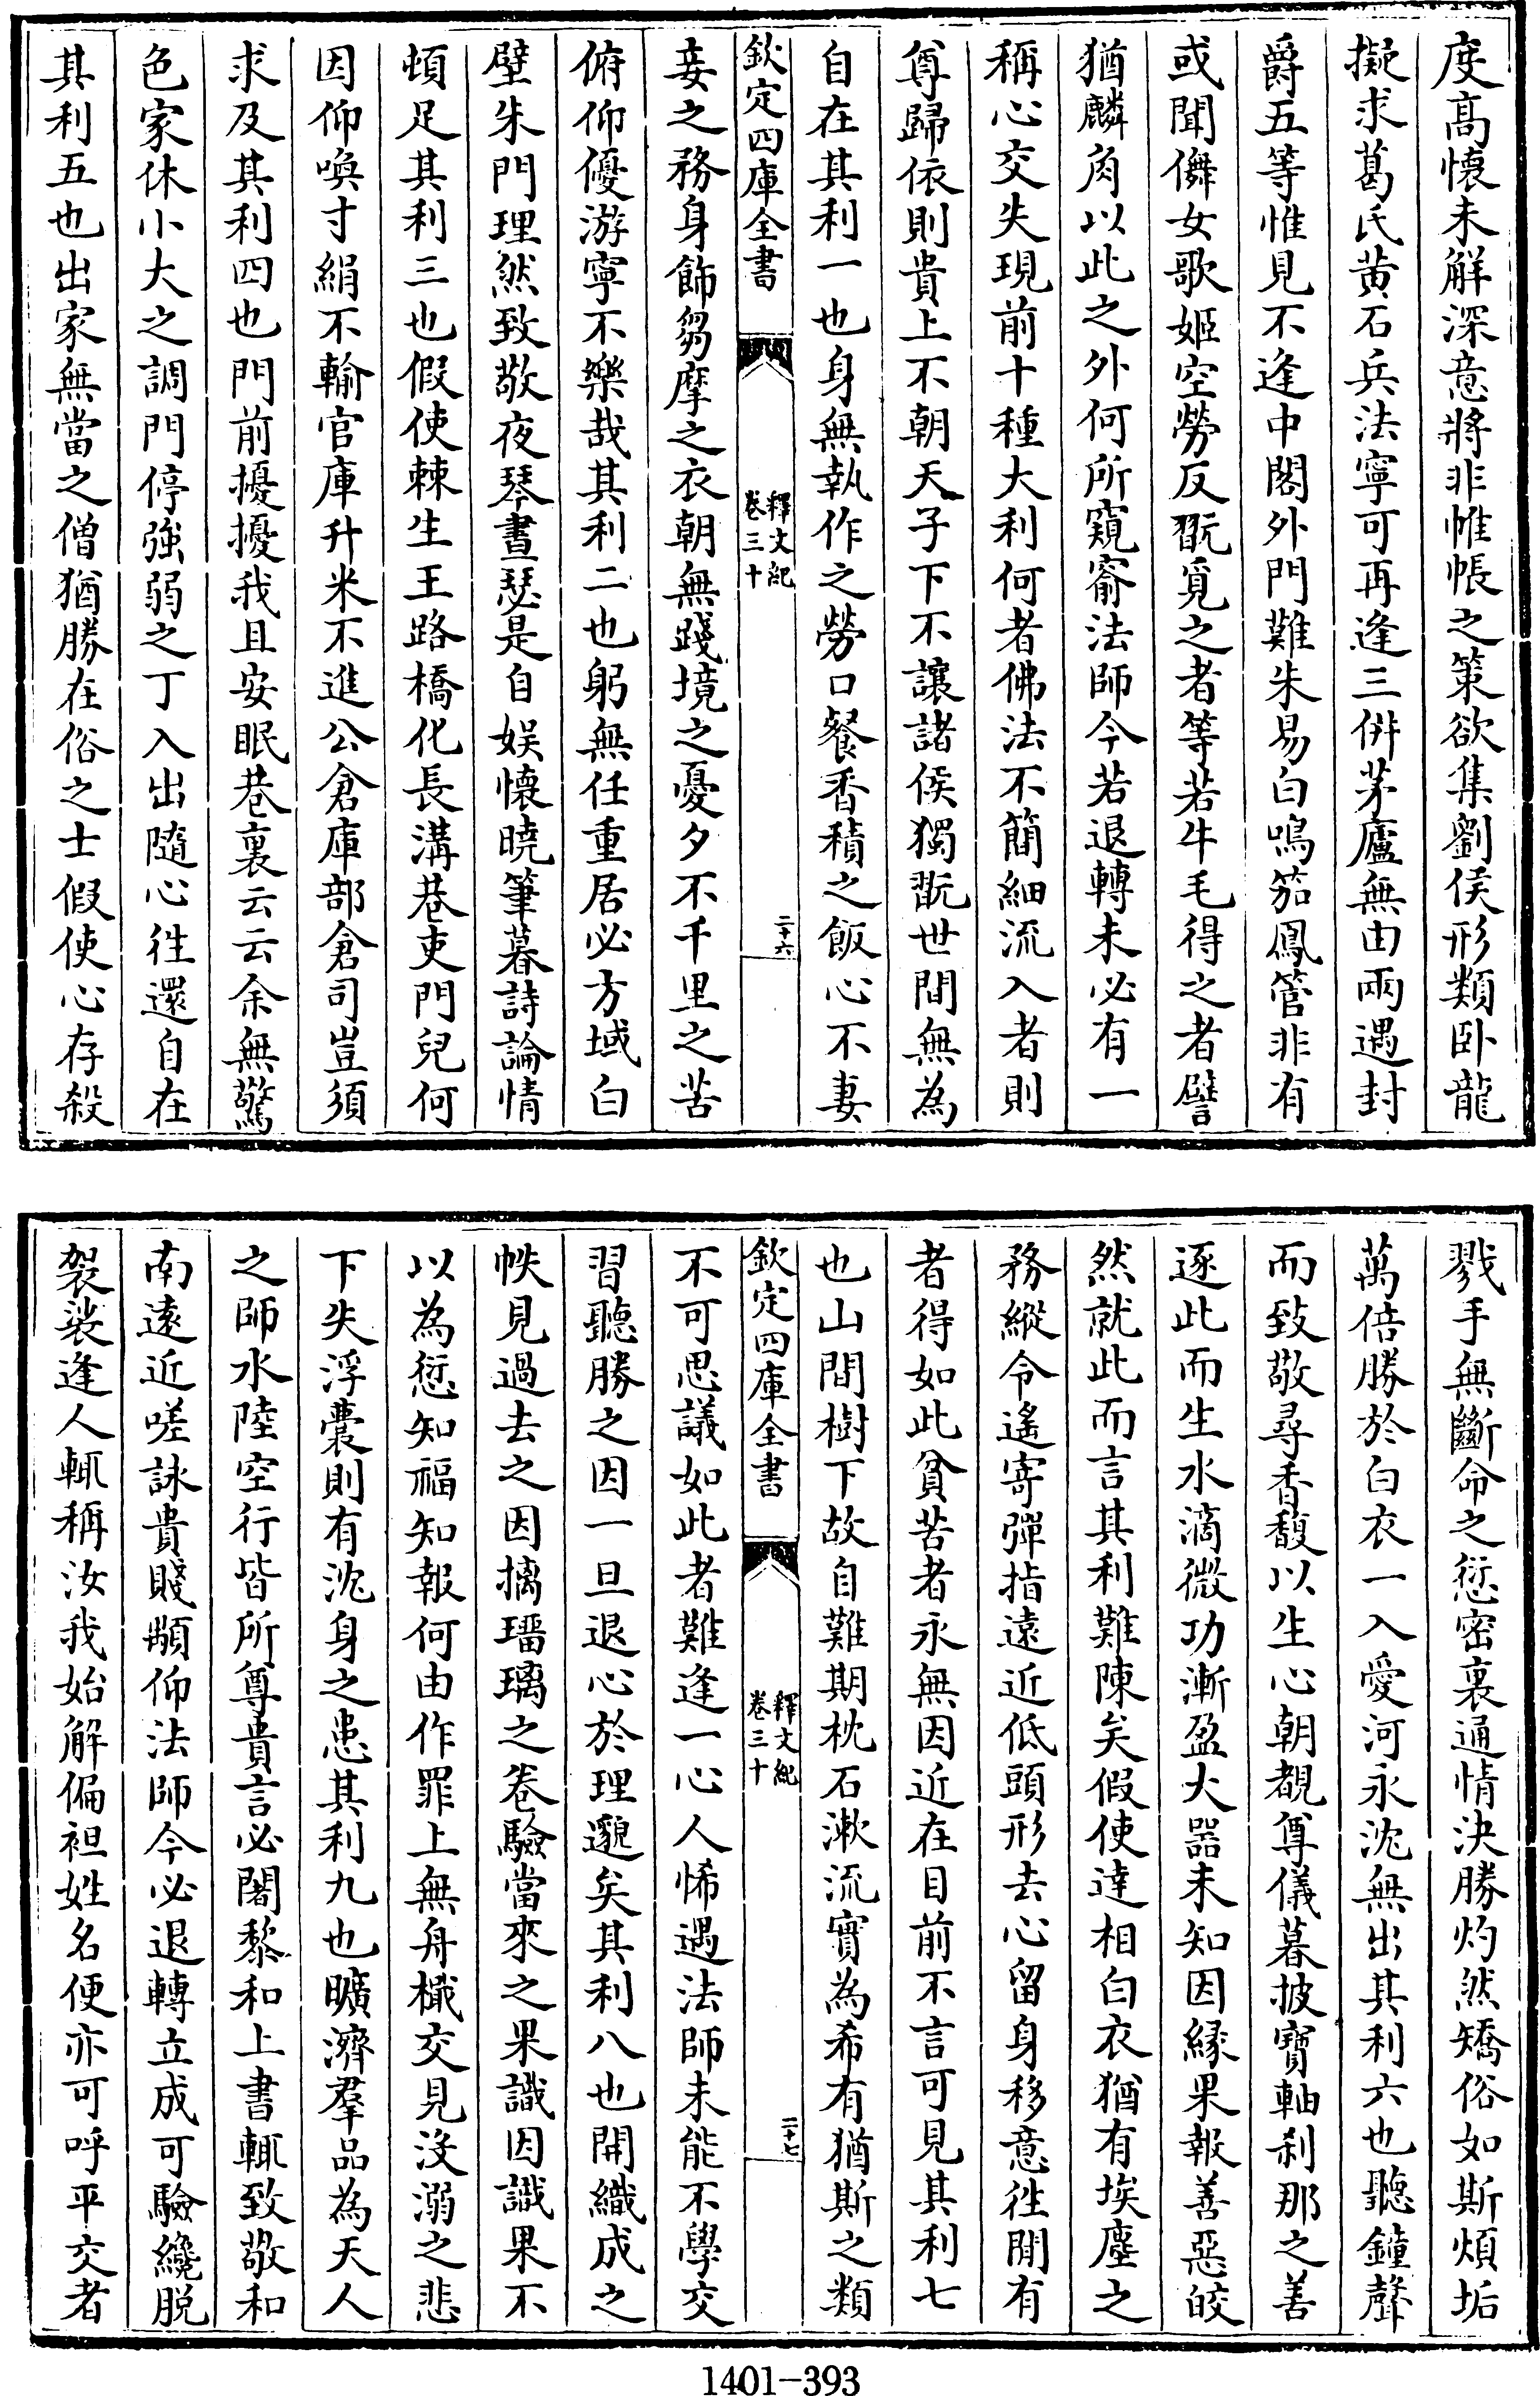 度高懷未解深意將非帷帳之策欲集劉侯形類卧龍
擬求葛氏黃石兵法寧可再逢三併茅廬無由兩遇封
爵五等惟見不逢中閣外門難朱易白鳴笳鳳管非有
或聞儛女歌姬空勞反翫覓之者等若牛毛得之者譬
猶麟角以此之外何所窺窬法師今若退轉未必有一
稱心交失現前十種大利何者佛法不簡細流入者則
尊歸依則貴上不朝天子下不讓諸侯獨翫世間無為
自在其利一也身無執作之勞口餐香積之飯心不妻
欽定四庫全書 釋文紀 卷三十 二十六
妾之務身飾芻摩之衣朝無踐境之憂夕不千里之苦
俯仰優游寧不樂哉其利二也躬無任重居必方域白
壁朱門理然致敬夜琴晝瑟是自娛懷曉筆暮詩論情
頓足其利三也假使棘生王路橋化長溝巷吏門兒何
因仰喚寸絹不輸官庫升米不進公倉庫部倉司豈須
求及其利四也門前擾擾我且安眠巷裏云云余無驚
色家休小大之調門停強弱之丁入出隨心往還自在
其利五也出家無當之僧猶勝在俗之士假使心存殺
戮手無斷命之愆密裏通情決勝灼然矯俗如斯煩垢
萬倍勝於白衣一入愛河永沈無出其利六也聽鐘聲
而致敬尋香馥以生心朝覩尊儀暮披寶軸刹那之善
逐此而生水滴微功漸盈大器未知因緣果報善惡皎
然就此而言其利難陳矣假使達相白衣猶有埃塵之
務縱令遙寄彈指遠近低頭形去心留身移意往閒有
者得如此貧苦者永無因近在目前不言可見其利七
也山間樹下故自難期枕石漱流實為希有猶斯之類
欽定四庫全書 釋文紀 卷三十 二十七
不可思議如此者難逢一心人悕遇法師未能不學交
習聽勝之因一旦退心於理邈矣其利八也開織成之
帙見過去之因摛琉璃之卷驗當來之果識因識果不
以為愆知福知報何由作罪上無舟檝交見沒溺之悲
下失浮囊則有沈身之患其利九也曠濟羣品為天人
之師水陸空行皆所尊貴言必闍黎和上書輒致敬和
南遠近嗟詠貴賤顒仰法師今必退轉立成可驗纔脫
袈裟逢人輒稱汝我始解偏袒姓名便亦可呼平交者
1401-393